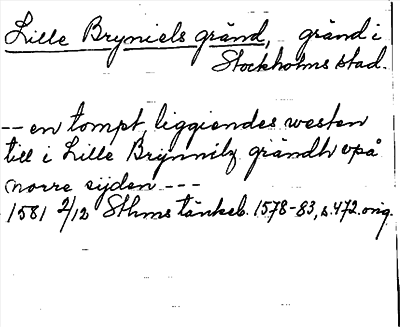 Lille Bryniels gränd, gränd i
Stockholms stad.
-- en tompt, liggiendes westen
till i Lille Brijnnilz grändh vpå
norre sijden ---
1581 2/12 Sthms tänkeb. 1578-83, s. 472. orig.